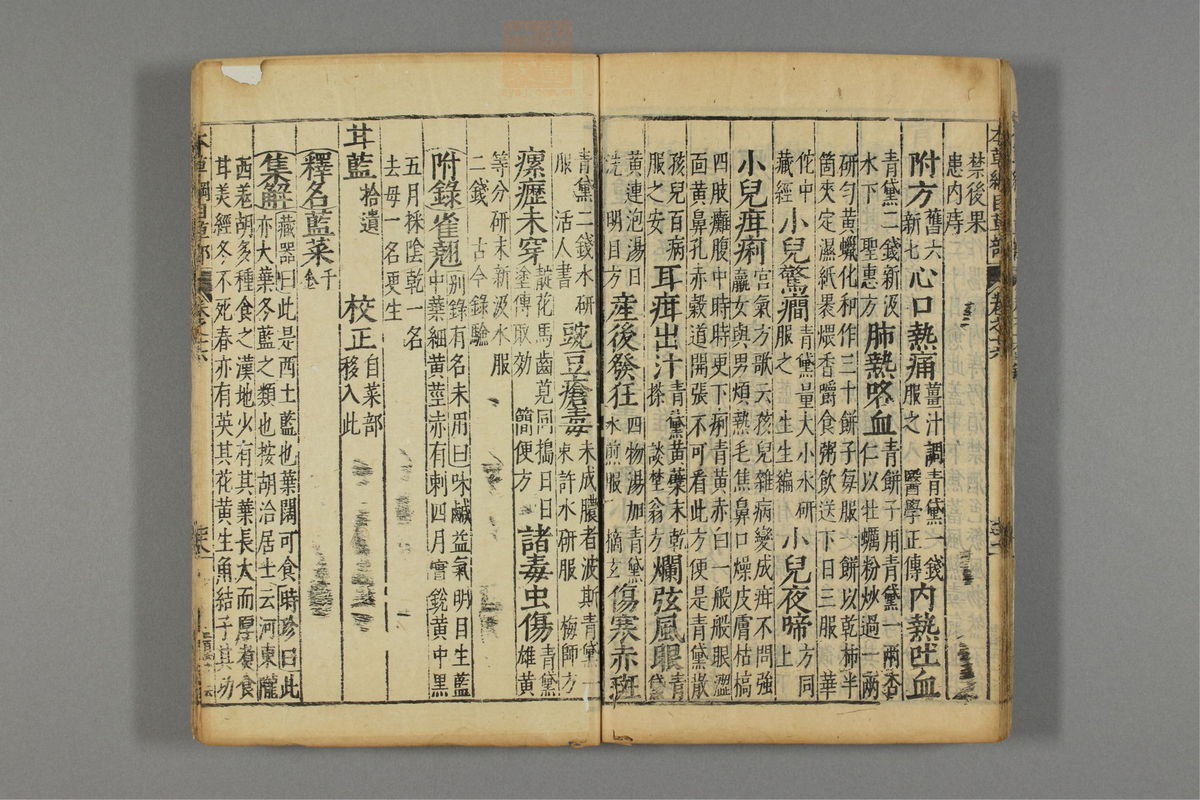 禁後果
患内痔
附方舊六新七心口熱痛薑汁調青黛一錢服之 醫學正傳内熱吐血
青黛二錢新汲水下 聖惠方肺熱咯血青餅子用青黛一兩杏仁以牡蠣粉炒過一兩
研勻黄蠟化和作三十餅子每服一餅以乾柿半
箇夾定濕紙裹煨香嚼食粥飲送下日三服 華
佗中藏經小兒驚癇青黛量大小水研服之 生生編小兒夜啼方同上
小兒疳痢宫氣方歌云孩兒雜病變成疳不問強羸女與男煩熱毛焦鼻口燥皮膚枯槁
四肢癱腹中時時更下痢青黄赤白一般般眼澀
面黄鼻孔赤穀道開張不可看此方便是青黛散
孩兒百病服之安耳疳出汁青黛黄蘗末乾搽 談埜翁方爛弦風眼青黛
黄連泡湯日洗 明目方産後發狂四物湯加青黛水煎服 摘玄傷寒赤斑
青黛二錢水研服 活人書豌豆瘡毒未成膿者波斯青黛一棗許水研服 梅師方
瘰癧未穿靛花馬齒莧同搗日日塗傅取効 簡便方諸毒虫傷青黛雄黄
等分研末新汲水服
二錢 古今錄驗
附錄雀翹別錄有名未用曰味鹹益氣明目生藍中葉細黄莖赤有刺四月實鋭黄中黑
五月采陰乾一名
去母一名更生
甘藍拾遺 校正自菜部移入此
釋名藍菜千金
集解藏器曰此是西土藍也葉闊可食時珍曰此亦大葉冬藍之類也按胡洽居士云河東隴
西羌胡多種食之漢地少有其葉長大而厚煮食
甘美經冬不死春亦有英其花黄生角結子其功